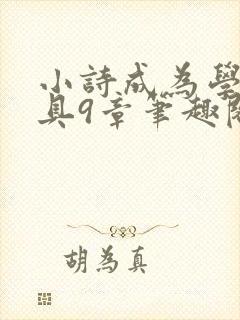 小詩成為學
具9章筆趣閣
胡為真